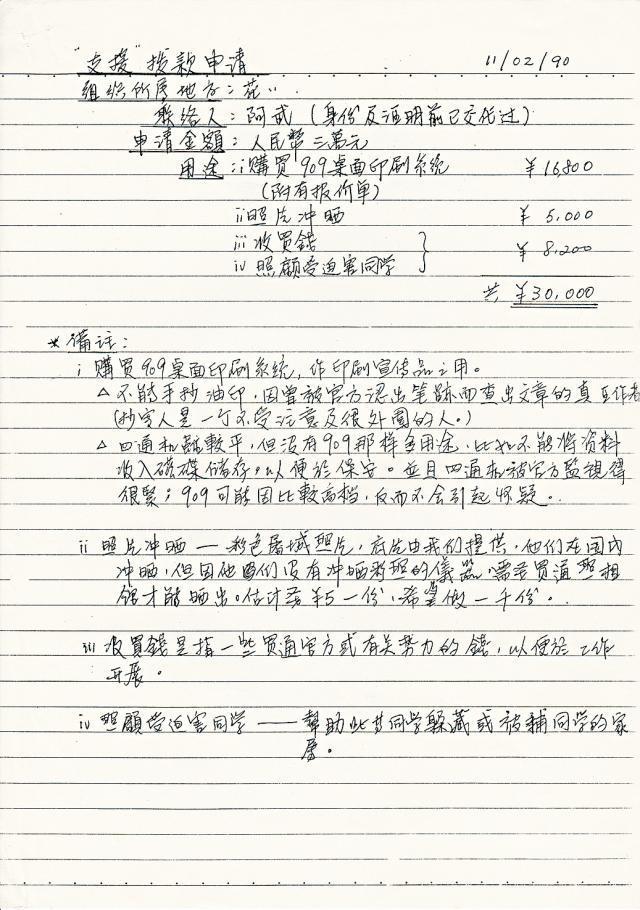 "支援"拨款申请 11/02/90
组织所属地方：花..
联络人：阿武（身份及证明前已交代过）
申请金額：人民幣三萬元
用途：i 購買909桌面印刷系統 ¥16,800
（附有报价单）
ii 照片冲晒 ¥ 5,000
iii 收買錢
iv 照顧受迫害同学 ¥ 8,200
共 ¥30,000
*備註：
i 購買909桌面印刷系統，作印刷宣传品之用。
△ 不能手抄油印，因曾被官方認出笔跡而查出文章的真正作者
（抄写人是一个不受注意及很外圍的人。）
△ 四通机雖較平，但没有909那样多用途，比如不能将資料
收入磁碟儲存，以便於保安。並且四通机被官方監視得
很緊；909可能因比較高档，反而不会引起怀疑。
ii 照片冲晒 — 彩色屠城照片，底片由我们提供，他们在国内
冲晒，但因他们没有冲晒彩照的儀器，需要買通照相
館才能晒出。估计要¥5一份，希望做一千份。
iii 收買錢是指一些買通官方或有关势力的錢，以便於工作
开展。
iv 照顧受迫害同学 — 幫助此等同学躲藏或被輔同学的家
属。